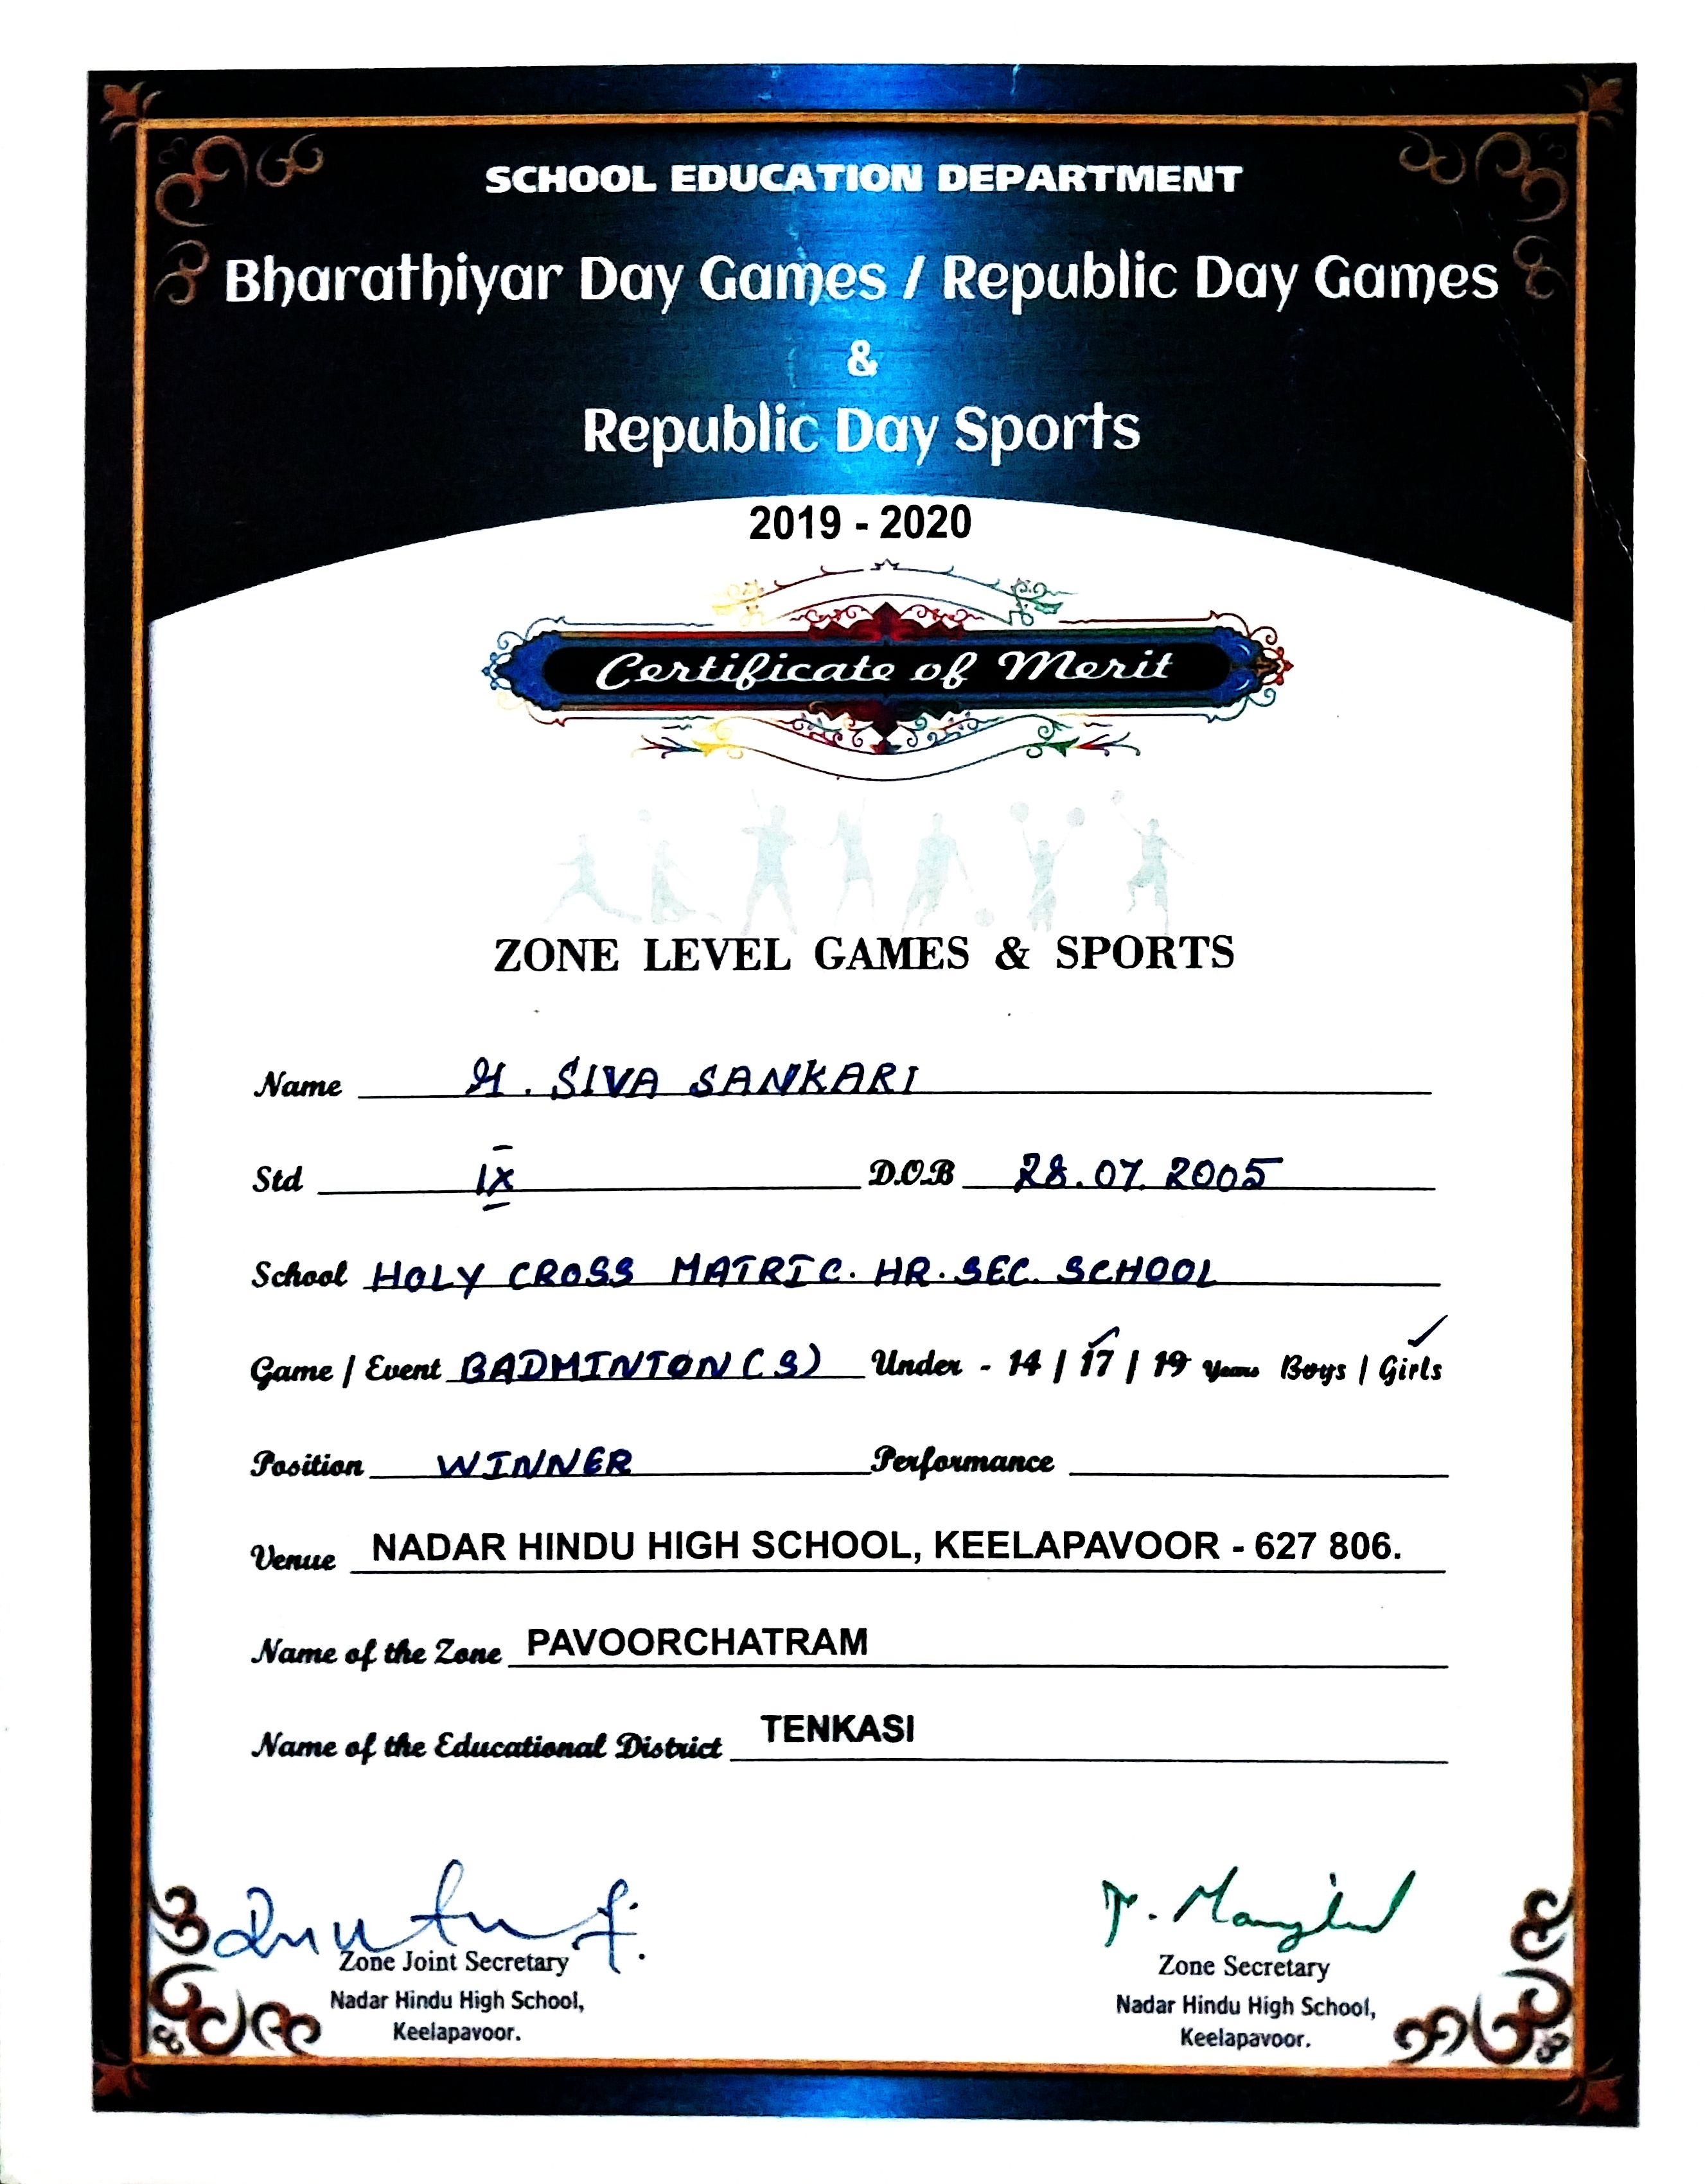 SCHOOL EDUCATION DEPARTMENT
Bharathiyar Day Games / Republic Day Games
&
Republic Day Sports
2019 - 2020
Certificate of Merit
ZONE LEVEL GAMES & SPORTS
Name SIVA SANKARI
Std IX D.O.B 28.07.2005
School HOLY CROSS MATRIC. HR. SEC. SCHOOL
Game / Event BADMINTON (S) Under - 14 / 17 / 19 Years Boys / Girls
Position WINNER Performance
Venue NADAR HINDU HIGH SCHOOL, KEELAPAVOOR - 627 806.
Name of the Zone PAVOORCHATRAM
Name of the Educational District TENKASI
Zone Joint Secretary
Nadar Hindu High School,
Keelapavoor.
Zone Secretary
Nadar Hindu High School,
Keelapavoor.